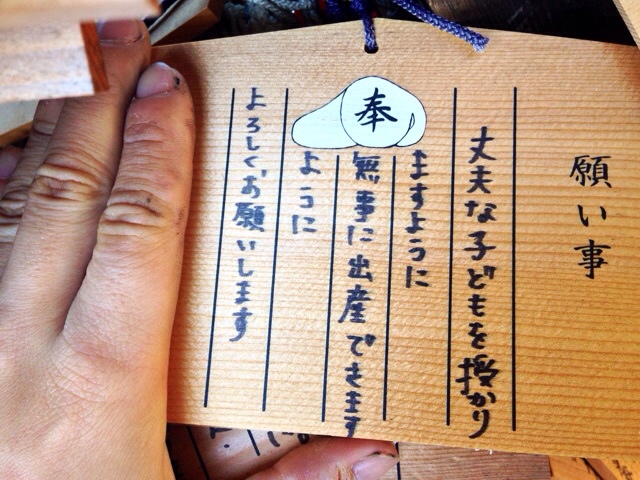 願い事
丈夫な子どもを授かり
ますように
奉
無事に出産できます
ように
よろしくお願いします